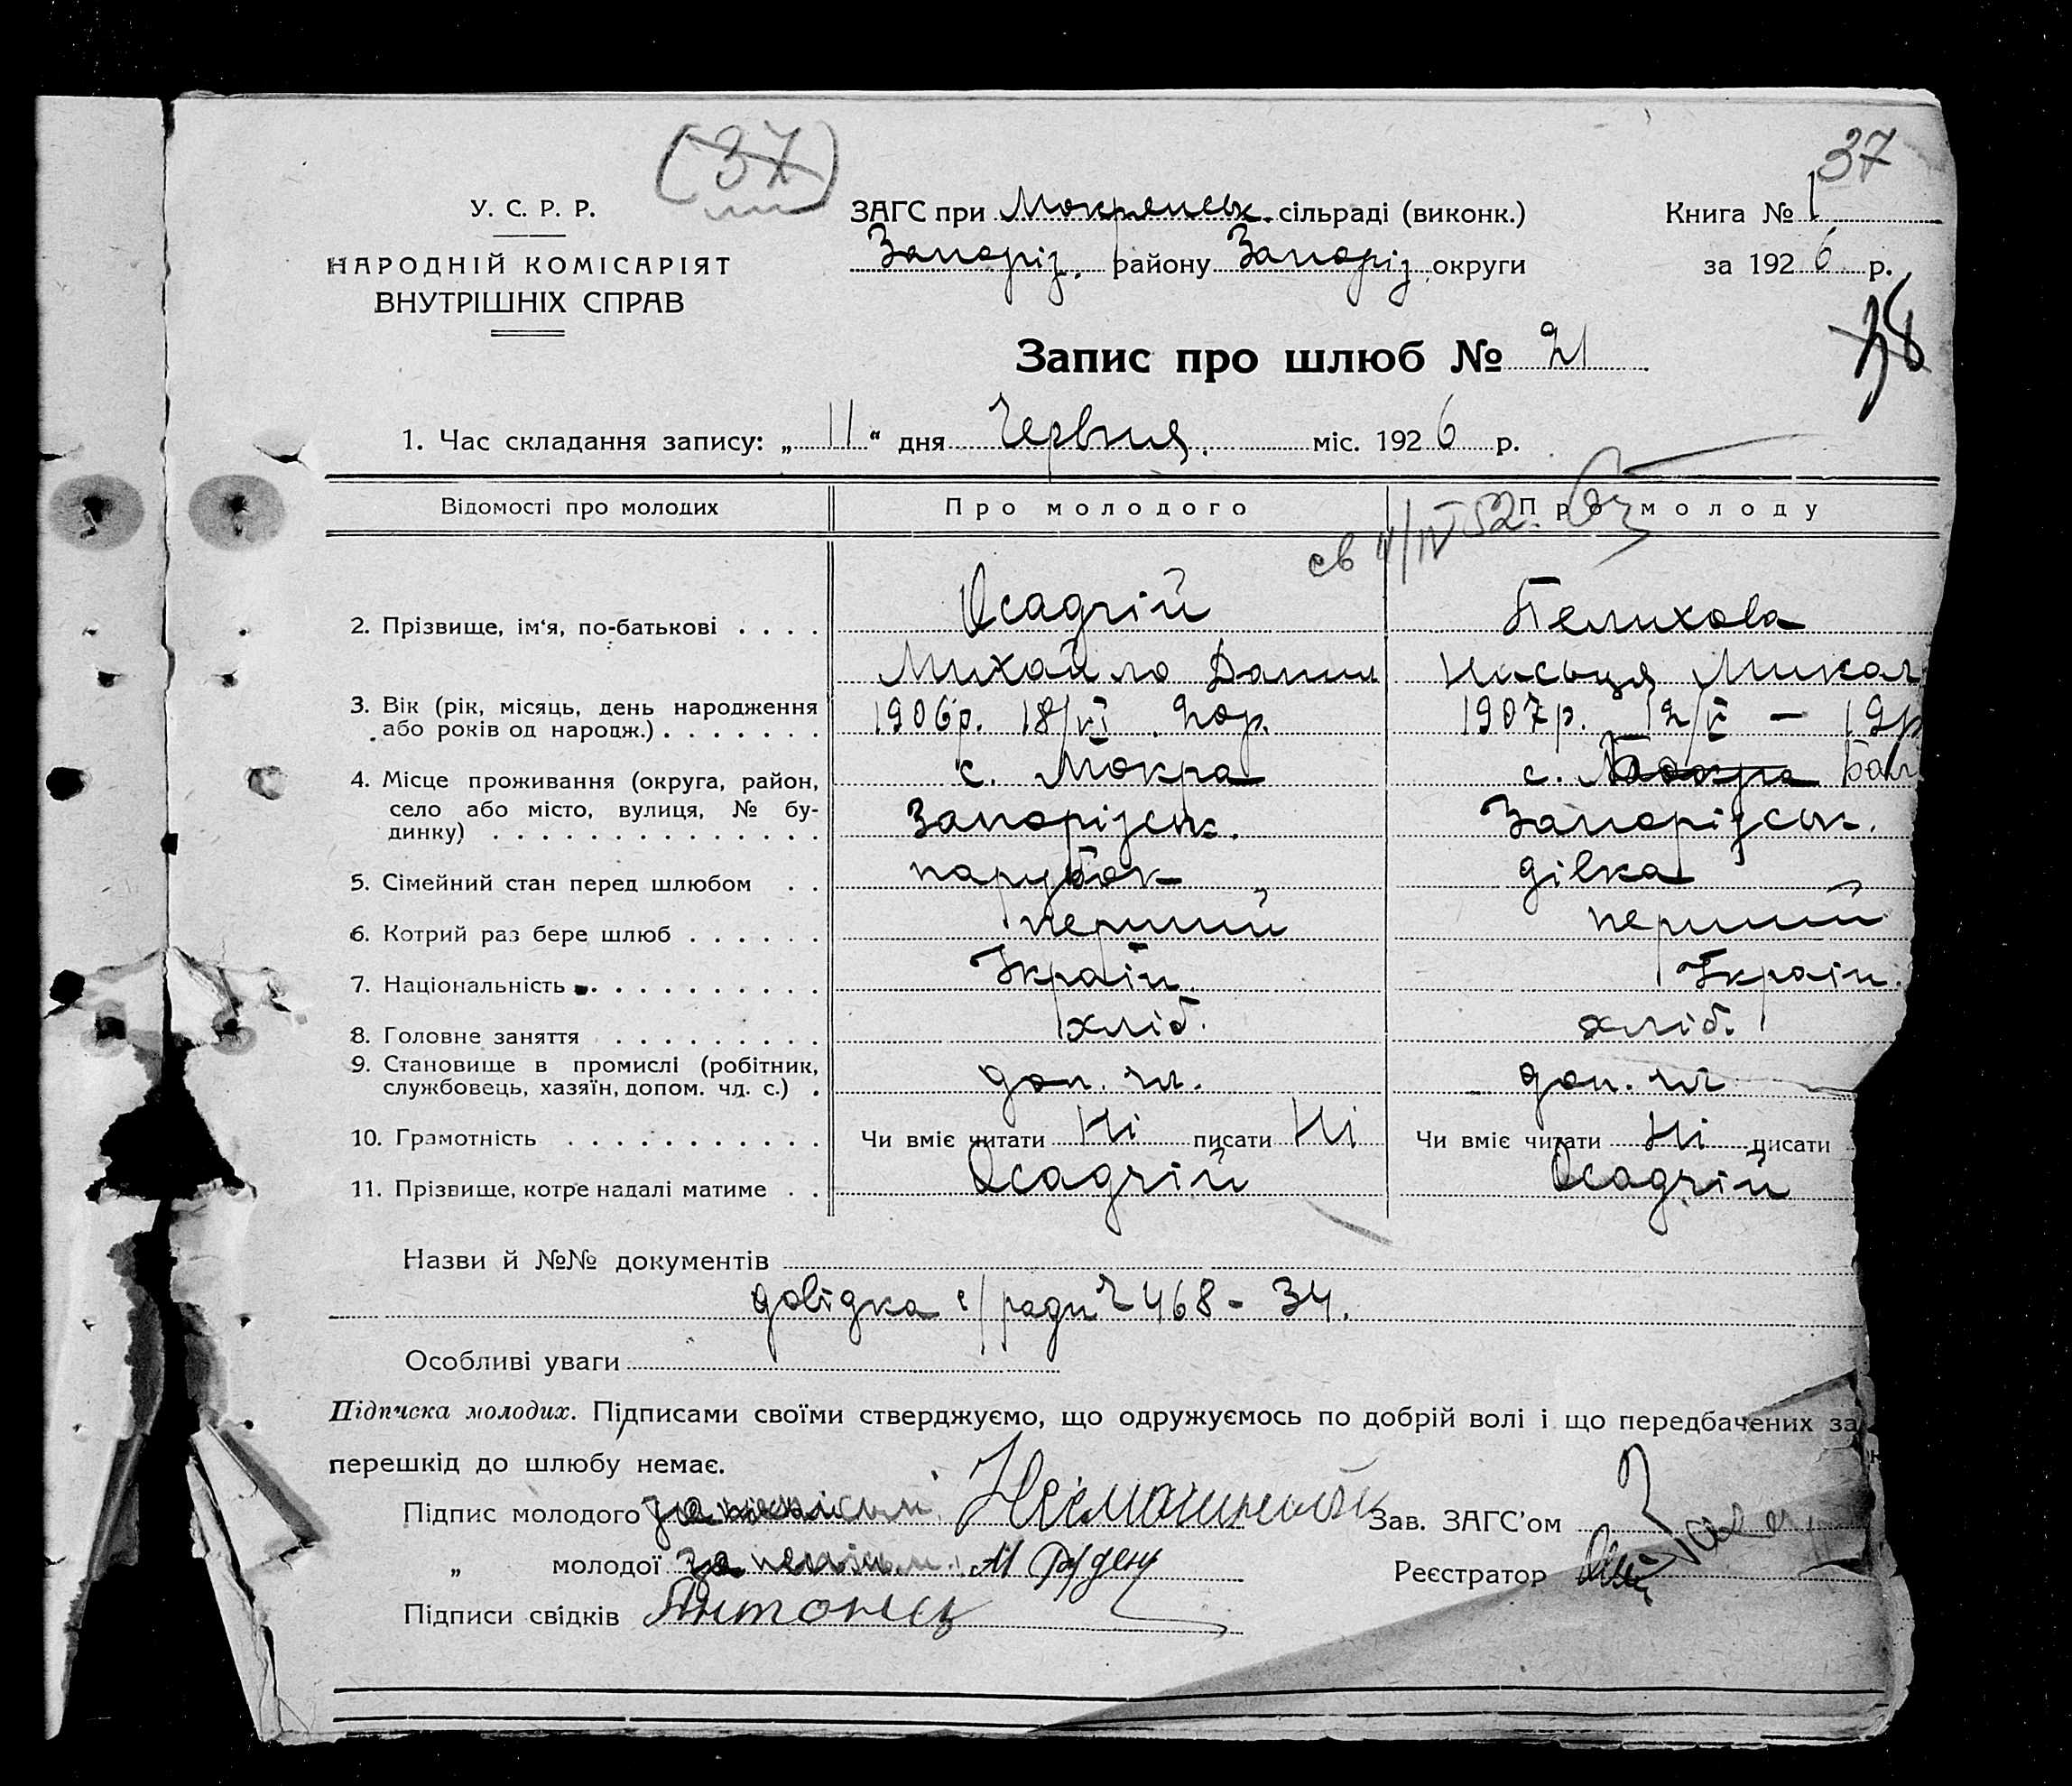 (37)
37
У. С. Р. Р.
НАРОДНІЙ КОМІСАРІЯТ
ВНУТРІШНІХ СПРАВ
ЗАГС при Мокрянськ. сільраді (виконк.)
Запоріз. району Запоріз. округи
Книга № 1
за 1926 р.
38
Запис про шлюб № 21
1. Час складання запису: „11“ дня Червня міс. 1926 р.
Відомості про молодих Про молодого Про молоду
св 4/IV 52.
2. Прізвище, ім‘я, по-батькові . . . . Осадчій Белихова
Михайло Данил Насьця Микол
3. Вік (рік, місяць, день народження
або років од народж.) . . . . . . . 1906р. 18/XI 20р. 1907р. 12/V — 19р
4. Місце проживання (округа, район,
село або місто, вулиця, № бу-
динку) . . . . . . . . . . . . . .
с. Мокра с. Мокра Бал
Запорізськ. Запорізськ.
5. Сімейний стан перед шлюбом . . парубок дівка
6. Котрий раз бере шлюб . . . . . . перший перший
7. Національність . . . . . . . . . . Україн. Україн.
8. Головне заняття . . . . . . . . . хліб. хліб.
9. Становище в промислі (робітник,
службовець, хазяїн, допом. чл. с.) . доп. чл. доп. чл
10. Грамотність . . . . . . . . . . . Чи вміє читати Ні писати Ні Чи вміє читати Ні писати
11. Прізвище, котре надалі матиме . . Осадчій Осадчій
Назви й №№ документів
довідка с/ради 468 - 34.
Особливі уваги
Підписка молодих. Підписами своїми стверджуємо, що одружуємось по добрій волі і що передбачених за
перешкід до шлюбу немає.
Підпис молодого за Зав. ЗАГС’ом
„ молодої за М Реєстратор
Підписи свідків Антонец